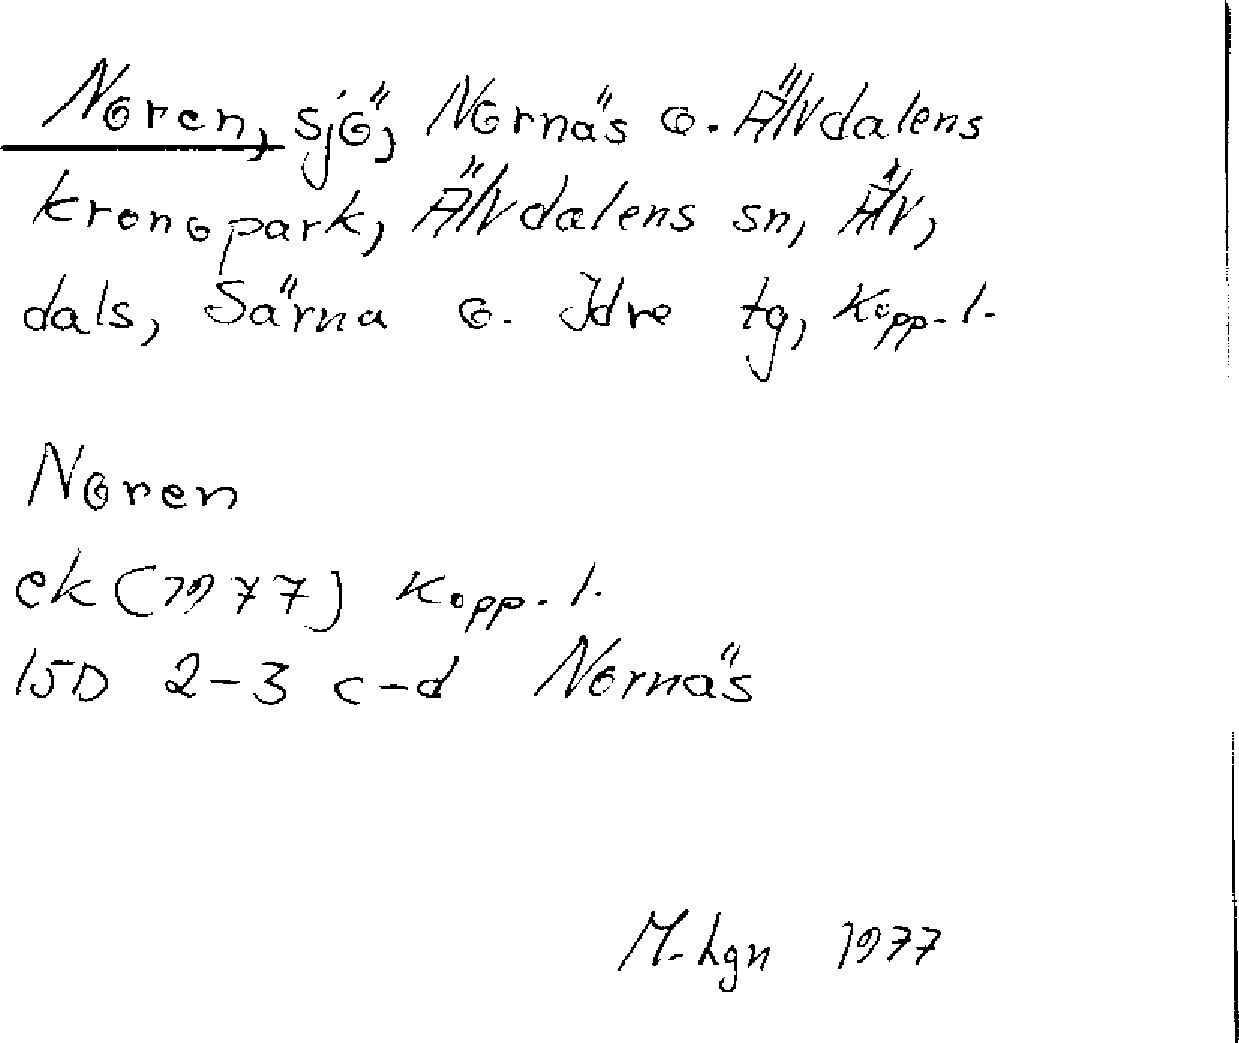 Noren, sjö, Nornäs o. Älvdalens
kronopark, Älvdalens sn, Älv,
dals, Särna o. Idre tg, Kopp. l.
Noren
ek (1977) Kopp. l.
15D 2-3 c-d Nornäs
M-hgn 1977